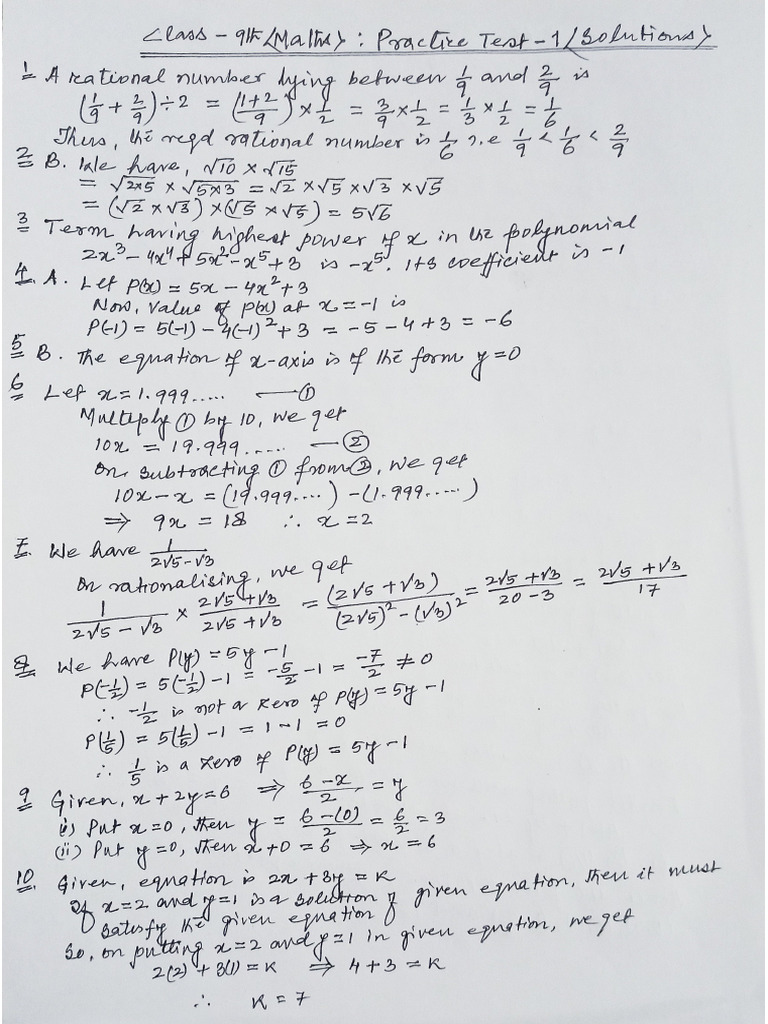 Class - 9th <Maths> : Practice Test - 1 (Solutions)
1 A rational number lying between 1/9 and 2/9 is
(1/9 + 2/9) ÷ 2 = (1+2/9) × 1/2 = 3/9 × 1/2 = 1/3 × 1/2 = 1/6
Thus, the reqd rational number is 1/6 i.e 1/9 < 1/6 < 2/9
2 B. We have, √10 × √15
= √2×5 × √5×3 = √2 × √5 × √3 × √5
= (√2 × √3) × (√5 × √5) = 5√6
3 Term having highest power of x in the polynomial
2x³ - 4x⁴ + 5x² - x⁵ + 3 is -x⁵. Its coefficient is -1
4. A. Let P(x) = 5x - 4x² + 3
Now, Value of P(x) at x = -1 is
P(-1) = 5(-1) - 4(-1)² + 3 = -5 - 4 + 3 = -6
5 B. The equation of x-axis is of the form y = 0
6 Let x = 1.999..... — ①
Multiply ① by 10, we get
10x = 19.999...... — ②
On subtracting ① from ②, we get
10x - x = (19.999....) - (1.999.....)
⇒ 9x = 18 ∴ x = 2
7. We have 1/2√5 - √3
On rationalising, we get
1/2√5 - √3 × 2√5 + √3/2√5 + √3 = (2√5 + √3)/(2√5)² - (√3)² = 2√5 + √3/20 - 3 = 2√5 + √3/17
8. We have P(y) = 5y - 1
P(-1/2) = 5(-1/2) - 1 = -5/2 - 1 = -7/2 ≠ 0
∴ -1/2 is not a zero of P(y) = 5y - 1
P(1/5) = 5(1/5) - 1 = 1 - 1 = 0
∴ 1/5 is a zero of P(y) = 5y - 1
9 Given, x + 2y = 6 ⇒ 6 - x/2 = y
(i) Put x = 0, then y = 6 - (0)/2 = 6/2 = 3
(ii) Put y = 0, then x + 0 = 6 ⇒ x = 6
10. Given, equation is 2x + 3y = K
If x = 2 and y = 1 is a solution of given equation, then it must
satisfy the given equation
So, on putting x = 2 and y = 1 in given equation, we get
2(2) + 3(1) = K ⇒ 4 + 3 = K
∴ K = 7